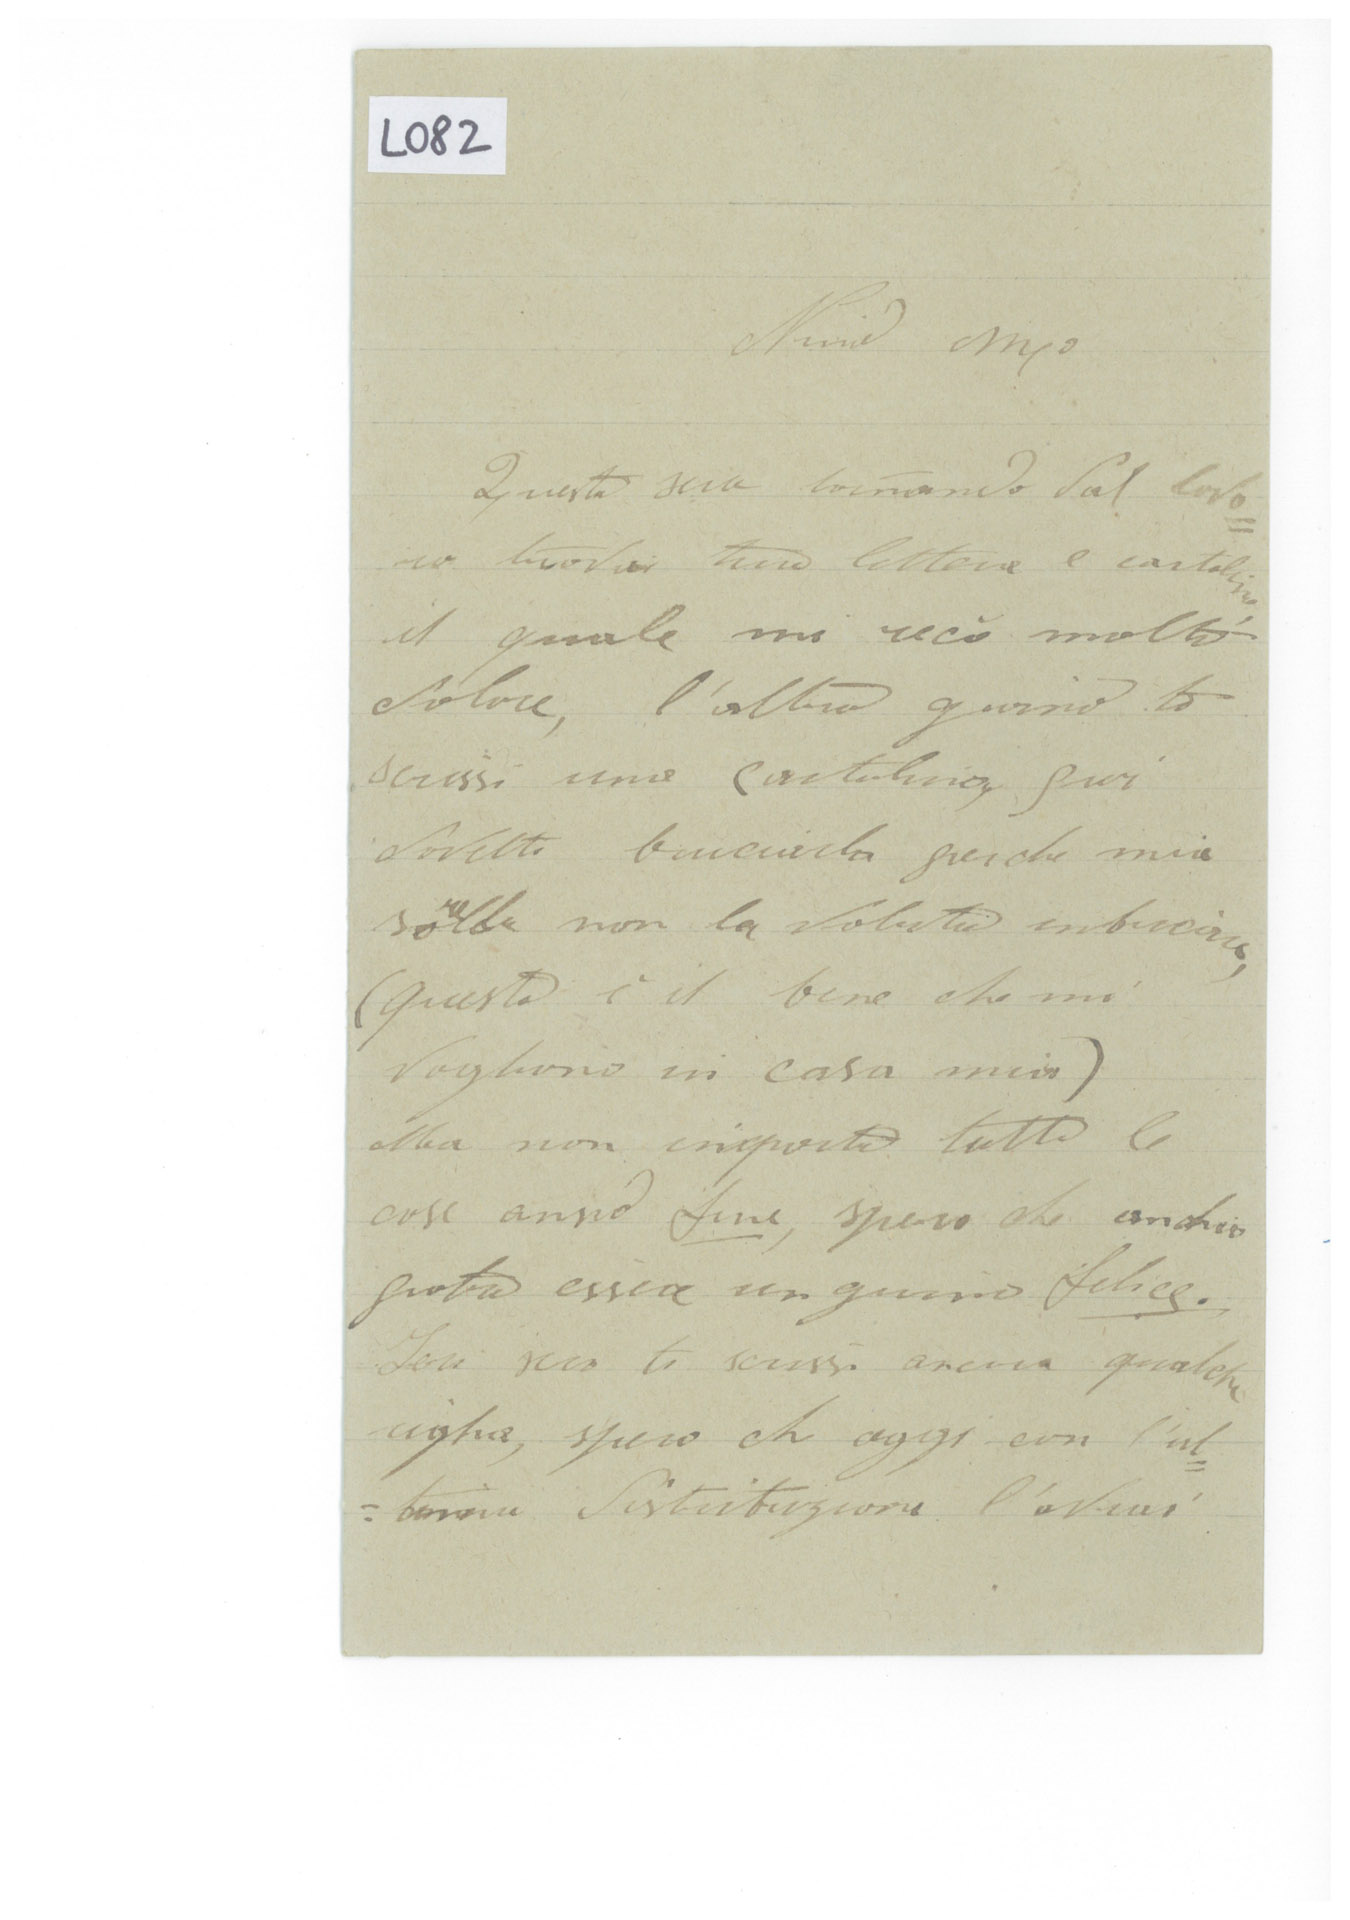 L082
Nino mio
Questa sera tornando dal lavo=
ro trovai tua lettera e cartolina
il quale mi recò molto
dolore, l'altro giorno ti
scrissi una cartolina, poi
dovetti bruciarla perche mia
sorella non la voluta inbucare,
(questo è il bene che mi
vogliono in casa mia)
Ma non importa tutte le
cose anno fine, spero che anchio
potrò essere un giorno felice.
Ieri sera ti scrissi ancora qualche
righa, spero che oggi con l'ul=
=tima distribuzione l'avrai